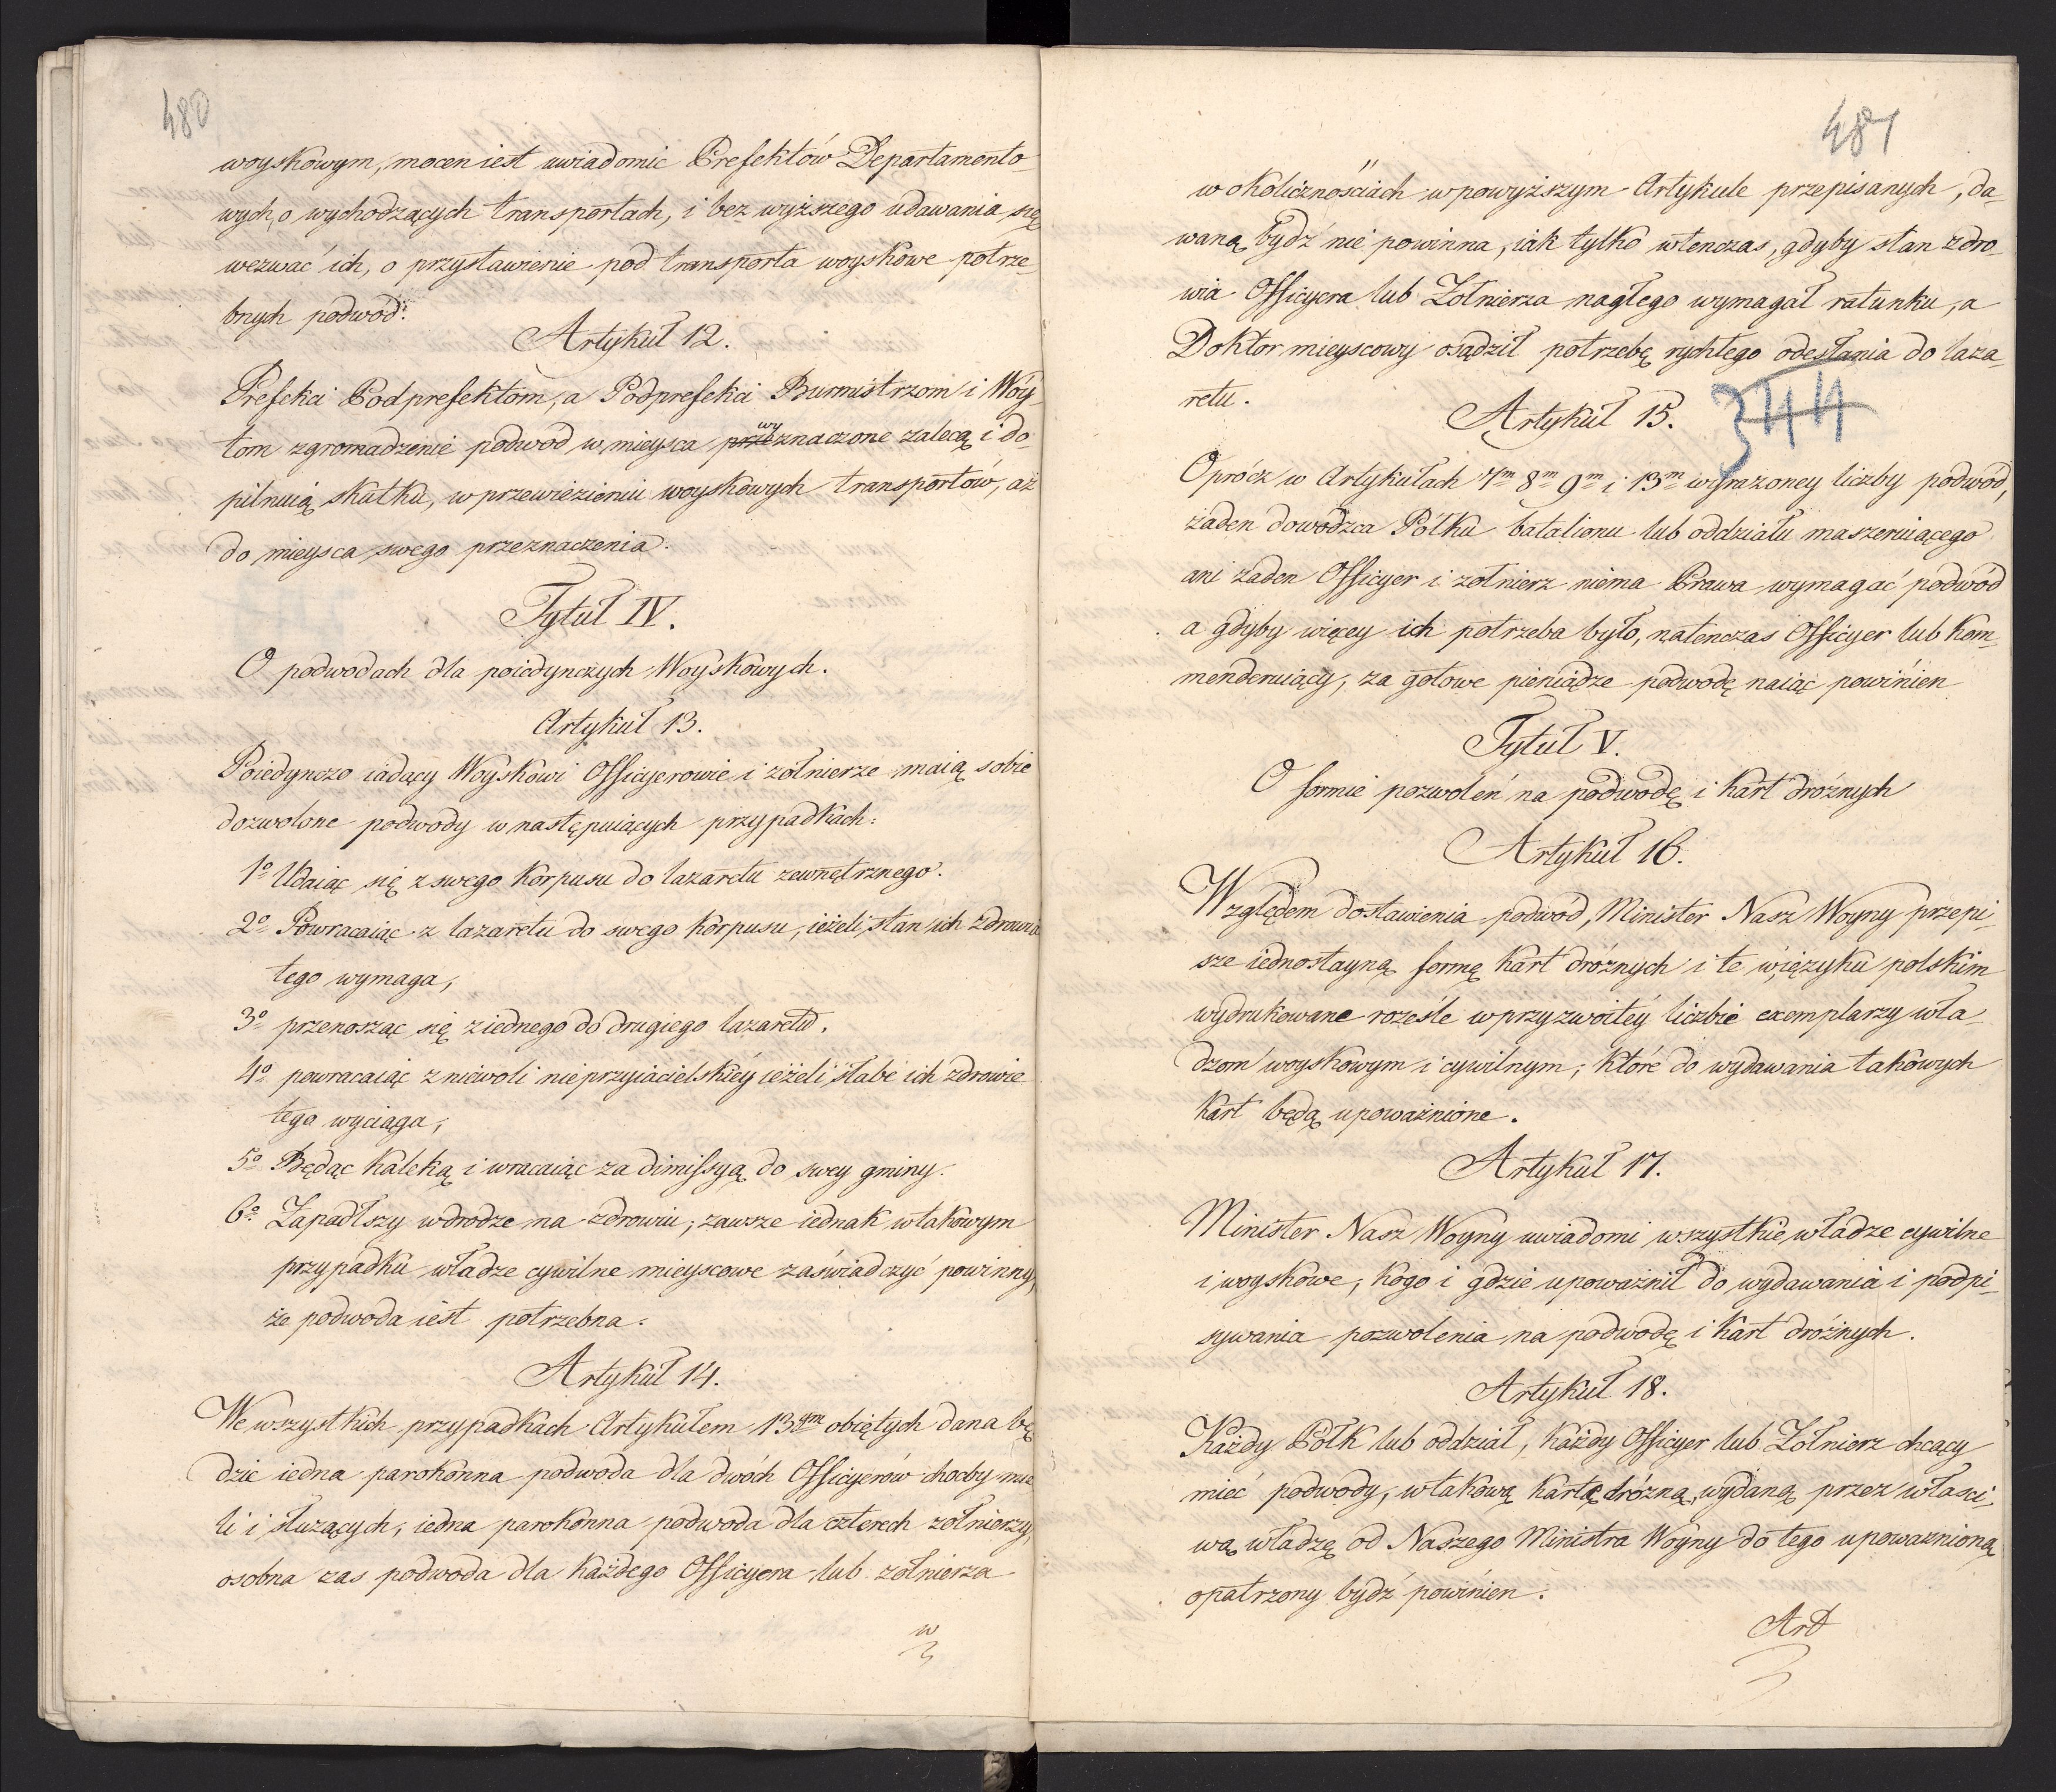 480
woyskowym, mocen iest uwiadomic Prefektów Departamento-
wych, o wychodzących transportach, i bez wyższego udawania się
wezwać ich, o przystawienie pod transporta woyskowe potrze
bnych podwód.
Artykuł 12.
Prefekci Podprefektom, a Podprefekci Burmistrzom i Wóy
tom zgromadzenie podwód w mieysca wyznaczone zalecą i do
pilnuią skutku, w przewiezieniu woyskowych transportów, aż
do mieysca swego przeznaczenia.
Tytuł IV.
O podwodach dla poiedynczych Woyskowych.
Artykuł 13.
Poiedynczo iadący Woyskowi Officyerowie i żołnierze maią sobie
dozwolone podwody w następuiących przypadkach:
1º Udaiąc się z swego Korpusu do lazaretu zewnętrznego.
2º Powracaiąc z lazaretu do swego Korpusu, ieżeli stan ich zdrowia
tego wymaga,
3º przenosząc się z iednego do drugiego lazaretu.
4º powracaiąc z niewoli nieprzyiacielskiéy ieżeli słabe ich zdrowie
tego wyciąga,
5º Będąc kaleką i wracaiąc za dimissyą do swey gminy.
6º Zapadłszy w drodze na zdrowiu, zawsze iednak w takowym
przypadku władze cywilne mieyscowe zaświadczyć powinny,
że podwoda iest potrzebna.
Artykuł 14.
We wszystkich przypadkach Artykułem 13ym obiętych dana bę
dzie iedna parokonna podwoda dla dwóch Officyerów choćby mie
li i służących, iedna parokonna podwoda dla czterech żołnierzy,
osobna zas podwoda dla każdego Officyera lub żołnierza
w
481
w okolicznościach w powyższym Artykule przepisanych, da-
waną bydź nie powinna, iak tylko wtenczas, gdyby stan zdro-
wia Officyera lub Żołnierza nagłego wymagał ratunku, a
Doktor mieyscowy osądził potrzebę rychłego odesłania do laza-
retu.
Artykuł 15.
344
Oprócz w Artykułach 7m 8m 9m i 13m wyrażoney liczby podwód,
żaden dowódzca Półku batalionu lub oddziału maszeruiącego
ani żaden Officyer i żołnierz niema Prawa wymagać podwód
a gdyby więcey ich potrzeba było, natenczas Officyer lub Kom-
menderuiący, za gotowe pieniądze podwodę naiąć powinien
Tytuł V.
O formie pozwoleń na podwodę i Kart dróżnych
Artykuł 16.
Względem dostawienia podwód, Minister Nasz Woyny przepi-
sze iednostayną formę Kart dróżnych i te w ięzyku polskim
wydrukowane roześle w przyzwoitéy liczbie exemplarzy wła-
dzom woyskowym i cywilnym, które do wydawania takowych
Kart będą upoważnione.
Artykuł 17.
Minister Nasz Woyny uwiadomi wszystkie władze cywilne
i woyskowe, kogo i gdzie upoważnił do wydawania i podpi-
sywania pozwolenia na podwodę i Kart dróżnych.
Artykuł 18.
Każdy Półk lub oddział, każdy Officyer lub Żołnierz chcący
mieć podwody, w takową kartę dróżną, wydaną przez właści-
wą władzę od Naszego Ministra Woyny do tego upoważnioną
opatrzony bydź powinien.
Art